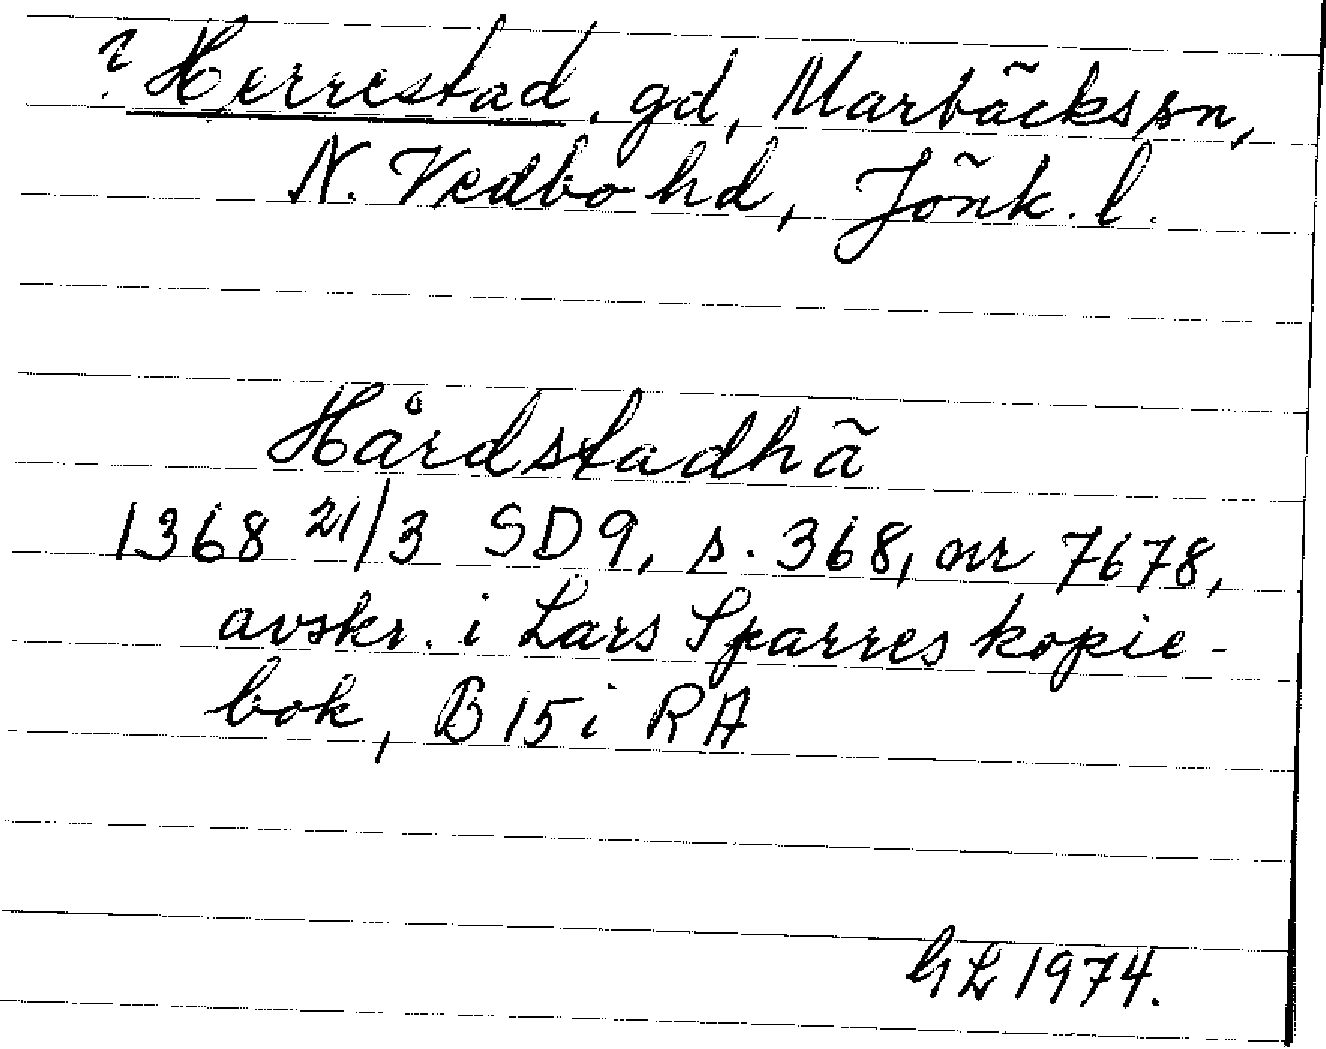 ? Herrestad, gd, Marbäcks sn,
N. Vedbo hd, Jönk. l.
Hårdstadhä
1368 21/3 SD 9, s. 368, nr 7678,
avskr. i Lars Sparres kopie-
bok, B 15 i RA
GL 1974.